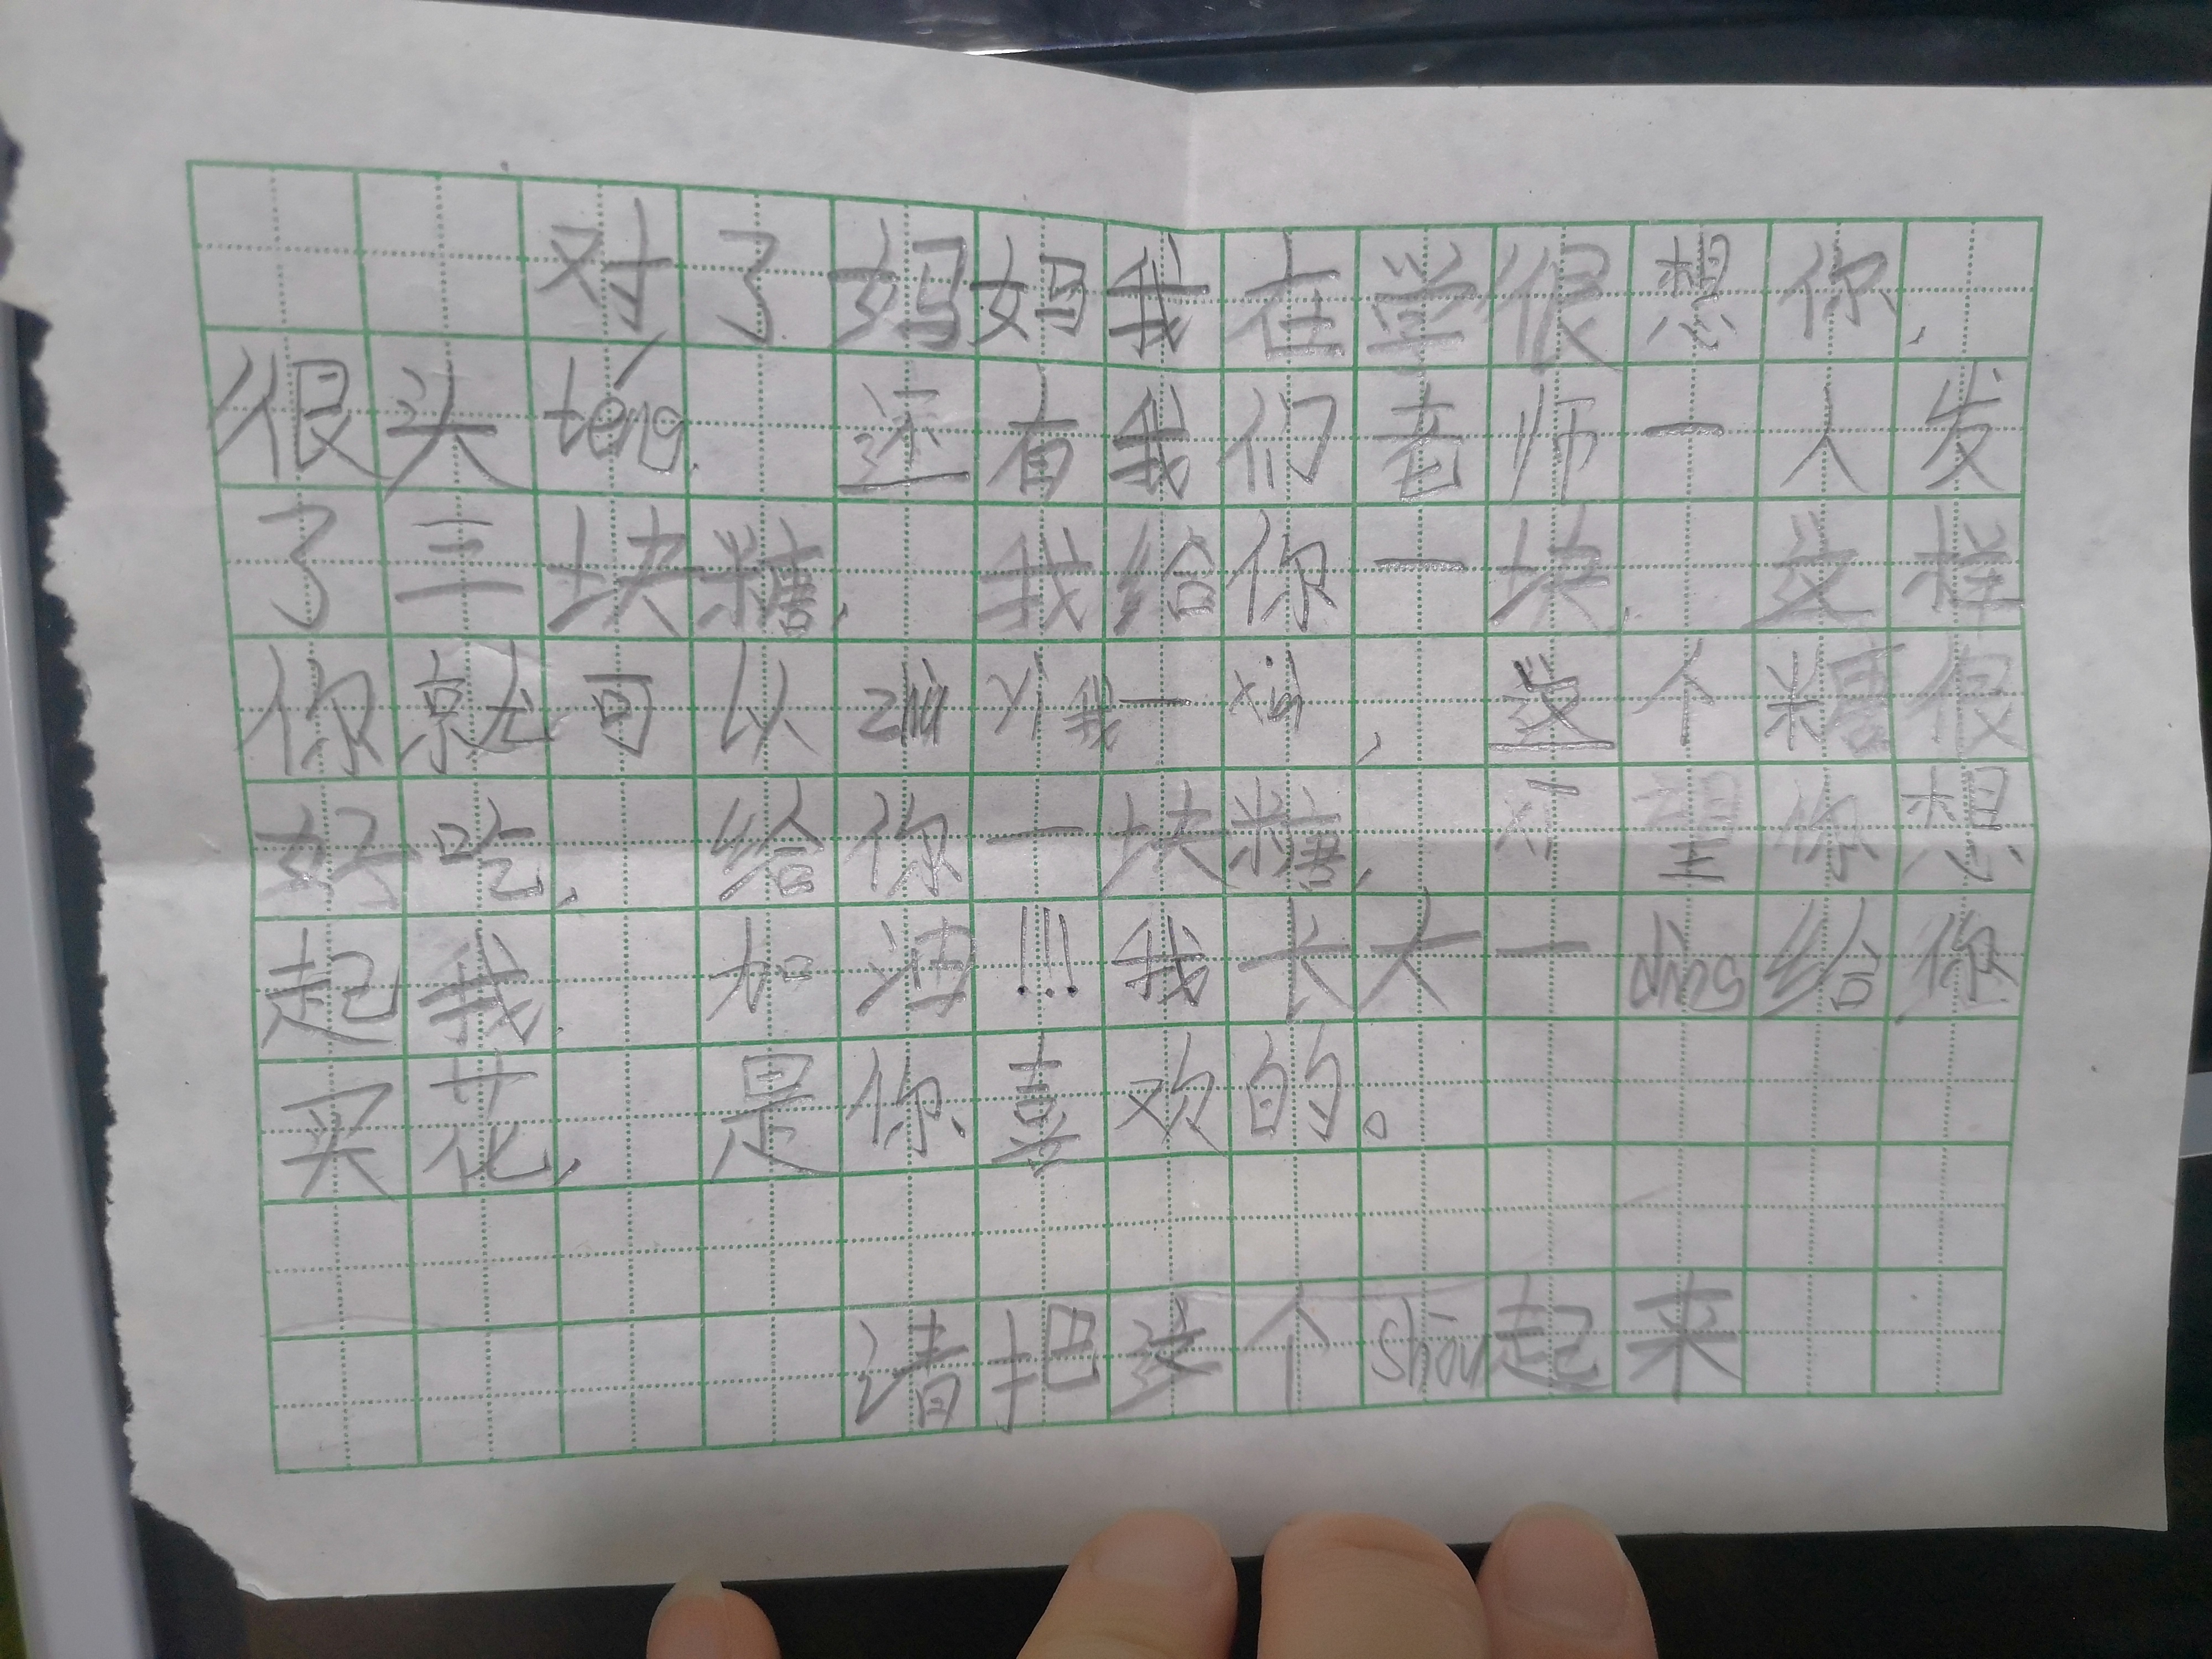 对了妈妈我在学很想你，
很头téng. 还有我们老师一人发
了三块糖， 我给你一块. 这样
你就可以 yì我一 ， 这个糖很
好吃， 给你一块糖， 望你想
起我. 加油!!!我长大一dìng给你
买花， 是你喜欢的。
请把这个shōu起来